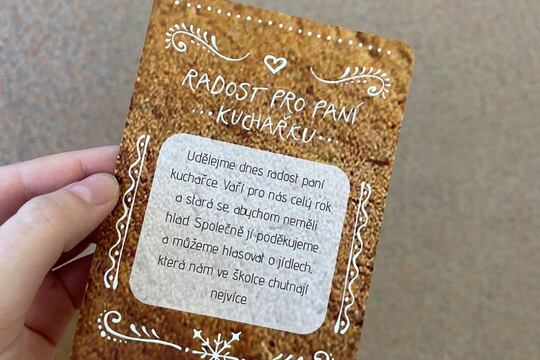 RADOST PRO PANÍ
KUCHAŘKU
Udělejme dnes radost paní
kuchařce. Vaří pro nás celý rok
a stará se, abychom neměli
hlad. Společně jí poděkujeme
a můžeme hlasovat o jídlech,
která nám ve školce chutnají
nejvíce.